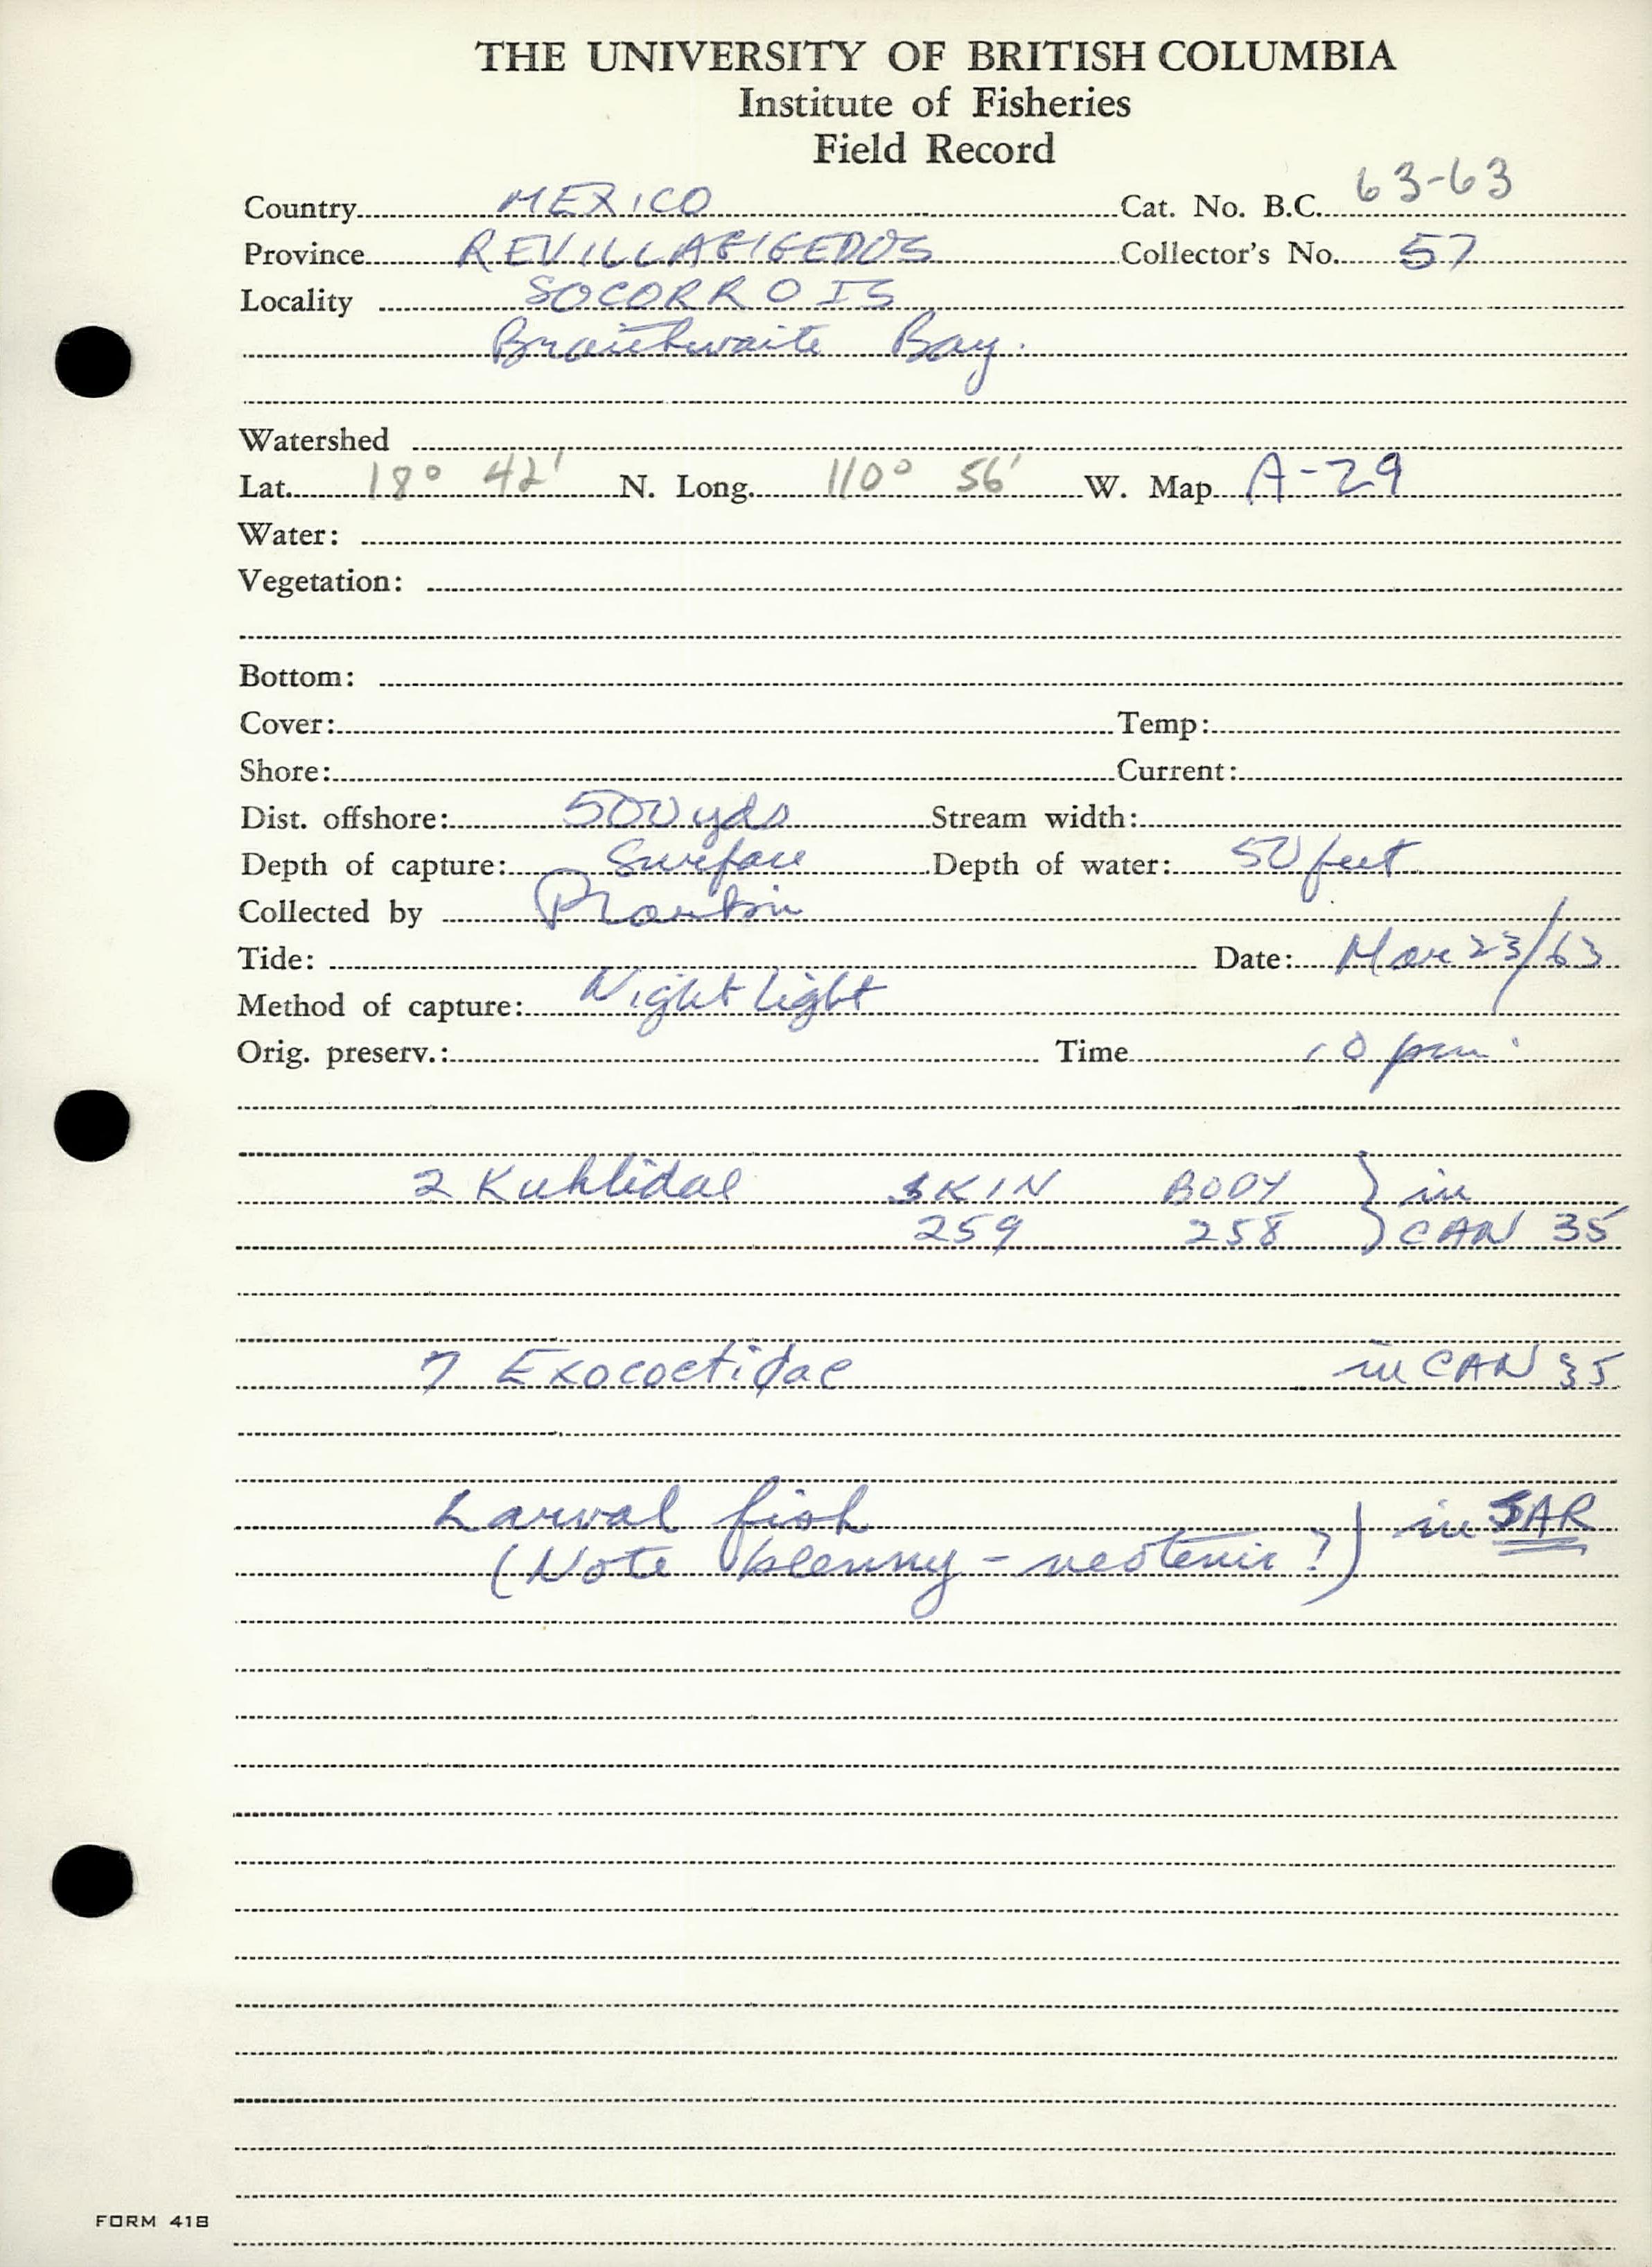 THE UNIVERSITY OF BRITISH COLUMBIA
Institute of Fisheries
Field Record
Country MEXICO Cat. No. B.C. 63-63
Province REVILLAGIGEDOS Collector's No. 57
Locality SOCORRO IS
Braithwaite Bay.
Watershed
Lat. 18° 42' N. Long. 110° 56' W. Map A-29
Water:
Vegetation:
Bottom:
Cover: Temp:
Shore: Current:
Dist. offshore: 500 yds Stream width:
Depth of capture: Surface Depth of water: 50 feet
Collected by
Tide: Date: Mar 23/63
Method of capture: Night light
Orig. preserv.: Time 10 pm.
2 Kuhlidae SKIN BODY } in
259 258 } CAN 35
7 Exocoetidae in CAN 35
Larval fish
(Note blenny - neotenic?) in SAR
FORM 41B